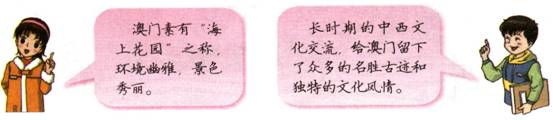 澳门素有“海
上花园”之称，
环境幽雅，景色
秀丽。
长时期的中西文
化交流，给澳门留下
了众多的名胜古迹和
独特的文化风情。